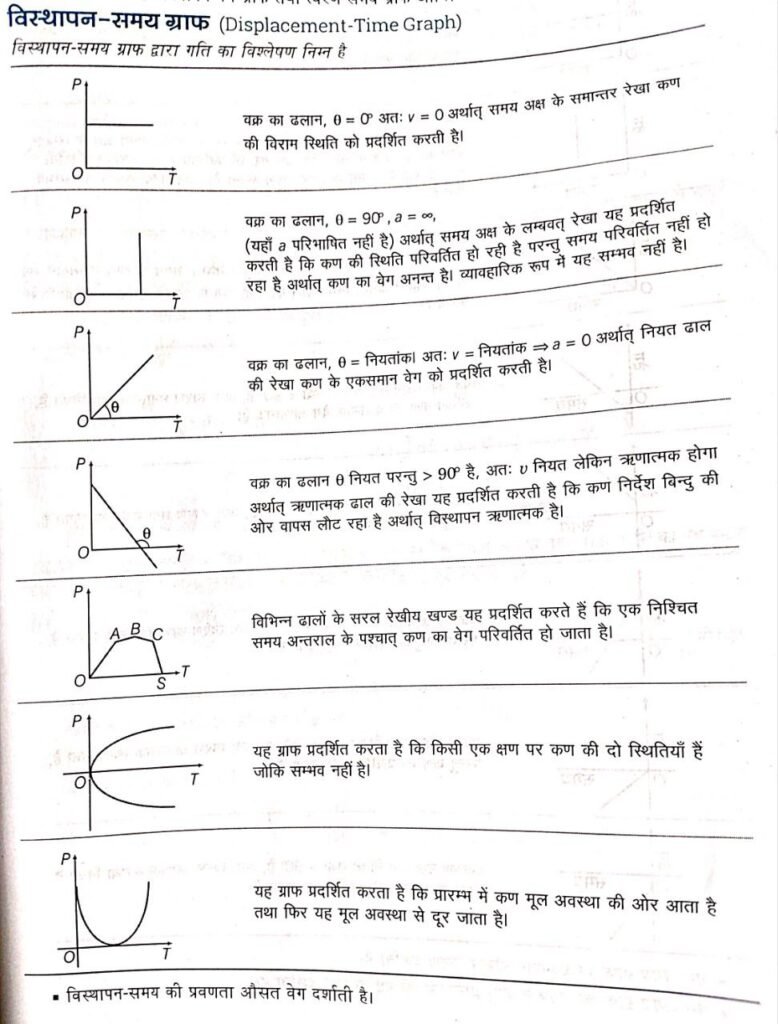 विस्थापन-समय ग्राफ (Displacement-Time Graph)
विस्थापन-समय ग्राफ द्वारा गति का विश्लेषण निम्न है
P
O
T
वक्र का ढलान, θ = 0° अतः v = 0 अर्थात् समय अक्ष के समान्तर रेखा कण
की विराम स्थिति को प्रदर्शित करती है।
P
O
T
वक्र का ढलान, θ = 90°, a = ∞,
(यहाँ a परिभाषित नहीं है) अर्थात् समय अक्ष के लम्बवत् रेखा यह प्रदर्शित
करती है कि कण की स्थिति परिवर्तित हो रही है परन्तु समय परिवर्तित नहीं हो
रहा है अर्थात् कण का वेग अनन्त है। व्यावहारिक रूप में यह सम्भव नहीं है।
P
θ
O
T
वक्र का ढलान, θ = नियतांक। अतः v = नियतांक ⇒ a = 0 अर्थात् नियत ढाल
की रेखा कण के एकसमान वेग को प्रदर्शित करती है।
P
θ
O
T
वक्र का ढलान θ नियत परन्तु > 90° है, अतः υ नियत लेकिन ऋणात्मक होगा
अर्थात् ऋणात्मक ढाल की रेखा यह प्रदर्शित करती है कि कण निर्देश बिन्दु की
ओर वापस लौट रहा है अर्थात् विस्थापन ऋणात्मक है।
P
A B C
O
S
T
विभिन्न ढालों के सरल रेखीय खण्ड यह प्रदर्शित करते हैं कि एक निश्चित
समय अन्तराल के पश्चात् कण का वेग परिवर्तित हो जाता है।
P
O
T
यह ग्राफ प्रदर्शित करता है कि किसी एक क्षण पर कण की दो स्थितियाँ हैं
जोकि सम्भव नहीं है।
P
O
T
यह ग्राफ प्रदर्शित करता है कि प्रारम्भ में कण मूल अवस्था की ओर आता है
तथा फिर यह मूल अवस्था से दूर जाता है।
▪ विस्थापन-समय की प्रवणता औसत वेग दर्शाती है।